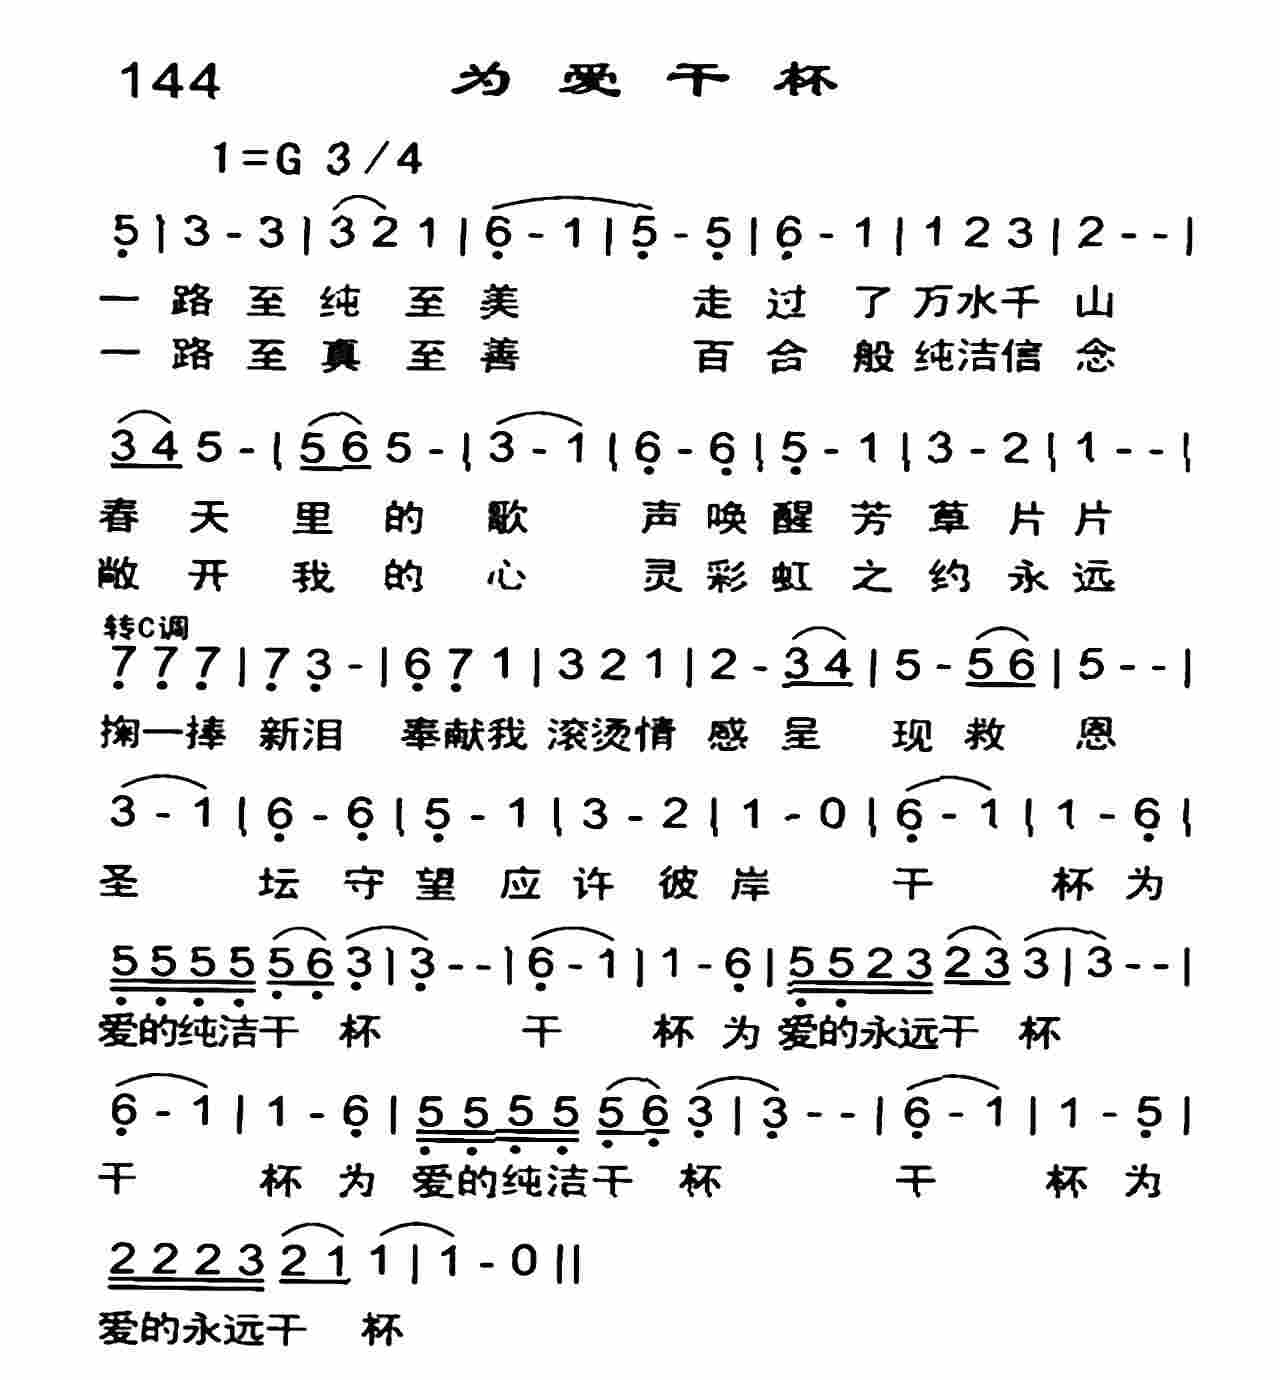 144 为爱干杯
1=G 3/4
5 | 3 - 3 | 3 2 1 | 6 - 1 | 5 - 5 | 6 - 1 | 1 2 3 | 2 - - |
一路至纯至美 走过了万水千山
一路至真至善 百合般纯洁信念
3 4 5 - | 5 6 5 - | 3 - 1 | 6 - 6 | 5 - 1 | 3 - 2 | 1 - - |
春天里的歌声唤醒芳草片片
敞开我的心灵彩虹之约永远
转C调
7 7 7 | 7 3 - | 6 7 1 | 3 2 1 | 2 - 3 4 | 5 - 5 6 | 5 - - |
掬一捧新泪 奉献我滚烫情感呈现救恩
3 - 1 | 6 - 6 | 5 - 1 | 3 - 2 | 1 - 0 | 6 - 1 | 1 - 6 |
圣坛守望应许彼岸 干杯为
5 5 5 5 5 6 3 | 3 - - | 6 - 1 | 1 - 6 | 5 5 2 3 2 3 3 | 3 - - |
爱的纯洁干杯 干杯为爱的永远干杯
6 - 1 | 1 - 6 | 5 5 5 5 5 6 3 | 3 - - | 6 - 1 | 1 - 5 |
干杯为爱的纯洁干杯 干杯为
2 2 2 3 2 1 1 | 1 - 0 ||
爱的永远干杯